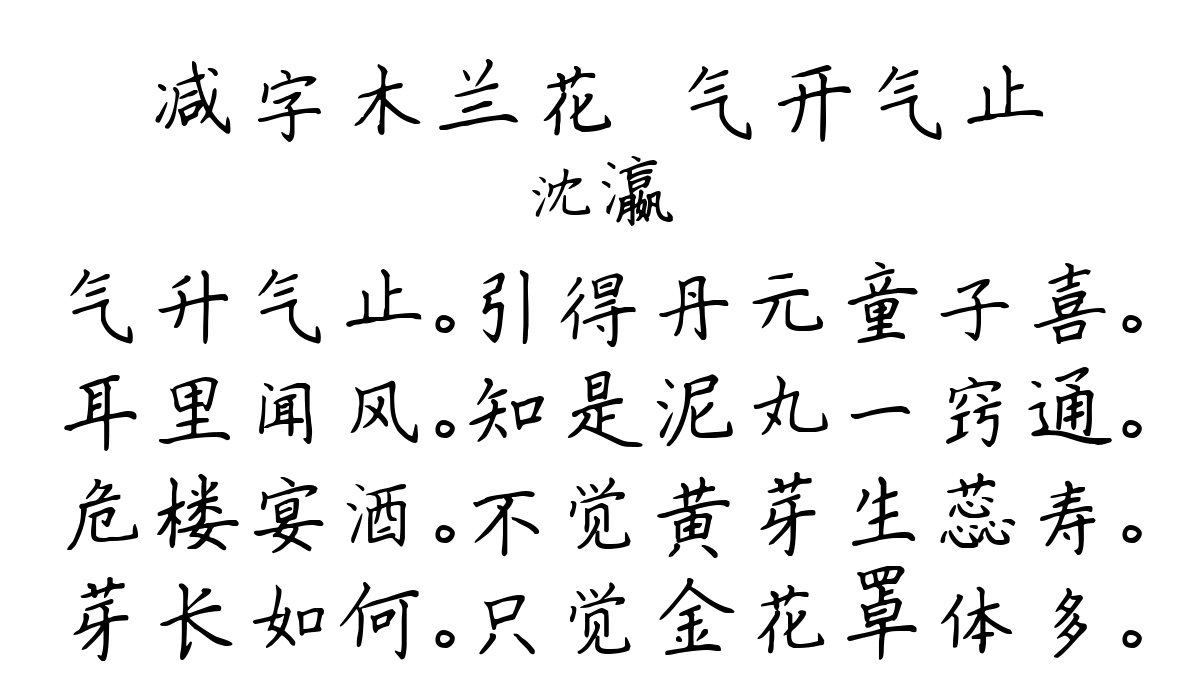 减字木兰花 气开气止
沈瀛
气升气止。引得丹元童子喜。
耳里闻风。知是泥丸一窍通。
危楼宴酒。不觉黄芽生蕊寿。
芽长如何。只觉金花罩体多。